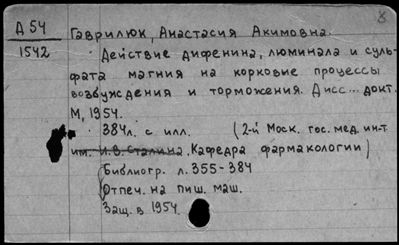 8
Д 54
1542
Гаврилюк, Анастасия Акимовна.
Действие дифенина, люминала и суль-
фата магния на корковые процессы
возбуждения и торможения. Дисс... докт.
М, 1954.
384л. с илл. (2-й Моск. гос. мед. ин-т
им. И.В. Сталина. Кафедра фармакологии)
Библиогр. л. 355-384
Отпеч. на пиш. маш.
Защ. в 1954